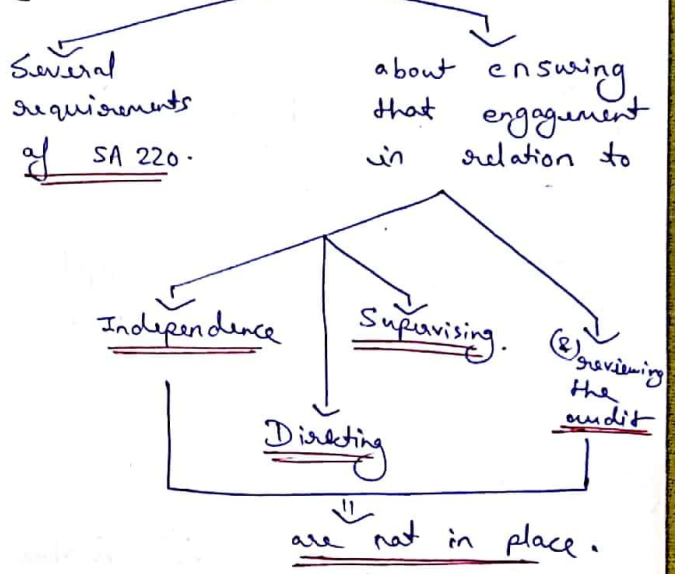 Several
requirements
of SA 220.
about ensuring
that engagement
in relation to
Independence
Supervising.
(&) reviewing
the
audit
Directing
are not in place.